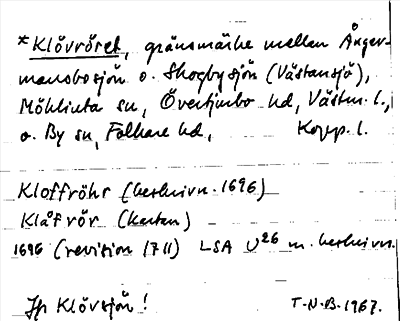 *Klövröret, gränsmärke mellan Ånger-
mansbosjön o. Skogbysjön (Västansjö),
Möklinta sn, Övertjurbo hd, Västm. l.,
o. By sn, Folkare hd, Kopp. l.
Kloffröhr (beskrivn. 1696)
Klåfrör (kartan)
1696 (revision 1711) LSA U26 m. beskrivn.
Jfr Klövsjön!
T-N-B-1967.